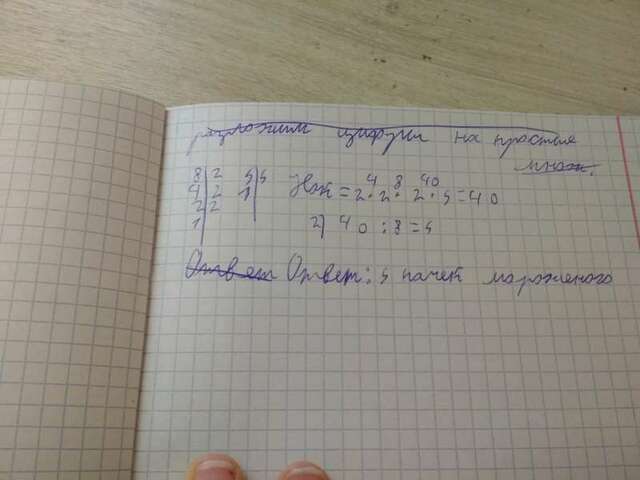 разложим цифры на простые
множ.
8 | 2 5 | 5
4 | 2 1
2 | 2
1
4 8 40
Нок = 2 · 2 · 2 · 5 = 40
2) 40 : 8 = 5
Ответ Ответ: 5 пачек мороженого